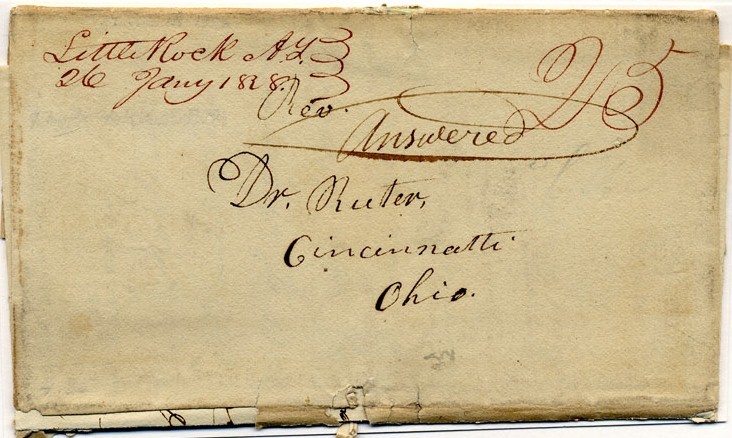 Little Rock A.T.
26 Jany 1828.
25
Rev.
Answered
Dr. Ruter,
Cincinnatti
Ohio.